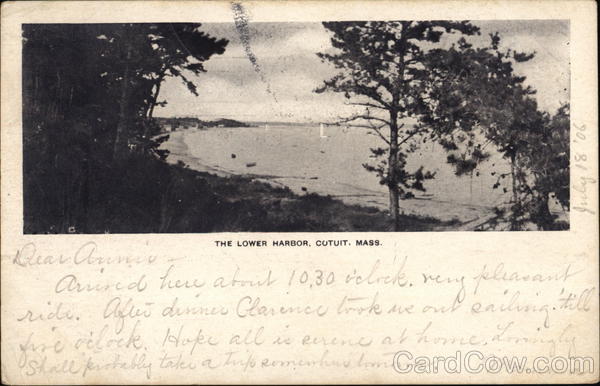 THE LOWER HARBOR, COTUIT, MASS.
July 18 '06
Dear Annie -
Arrived here about 10,30 o'clock. very pleasant
ride. After dinner Clarence took us out sailing 'till
five o'clock. Hope all is serene at home. Lovingly
Shall probably take a trip somewhere
CardCow.com